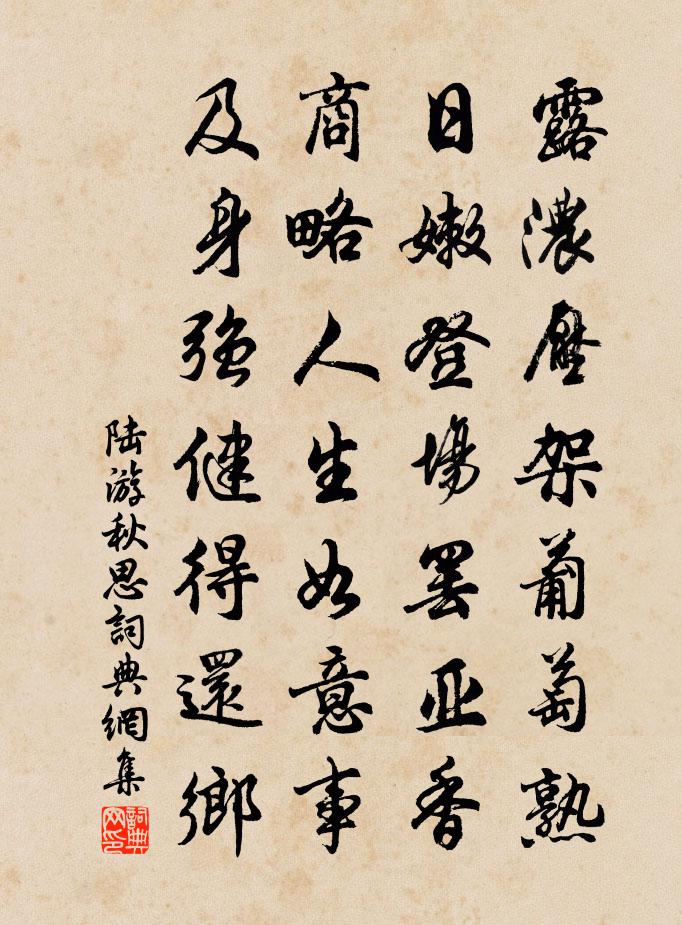 露濃壓架葡萄熟
日嫩登場罷亞香
商略人生如意事
及身強健得還鄉
陆游秋思詞典網集
詞典網印